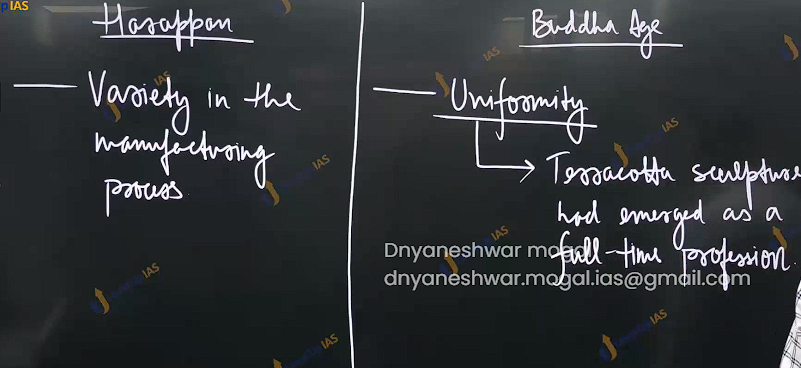 pIAS
Harappan
Variety in the
manufacturing
process
Buddha Age
Uniformity
Terracotta sculpture
had emerged as a
full-time profession.
Dnyaneshwar mogal
dnyaneshwar.mogal.ias@gmail.com
IAS
IAS
IAS
IAS
IAS
IAS
IAS
IAS
IAS
IAS